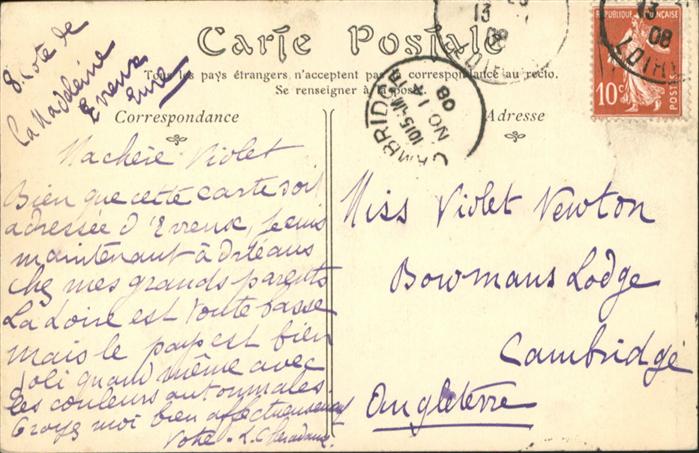 8. Côte de
La Madeleine
Evreux
Eure
Carte Postale
Tous les pays étrangers n'acceptent pas la correspondance au recto.
Se renseigner à la poste
Correspondance
Adresse
13
08
LOIR
CAMBRIDGE
10 15 AM
NO 14
08
13
08
LOIR
FRANÇAISE
10c
POSTES
Ma chère Violet
Bien que cette carte soit
adressée d'Evreux, je suis
maintenant à Orléans
chez mes grands parents
La Loire est toute basse
mais le pays est bien
joli quand même avec
les couleurs automnales.
Croyez moi bien affectueusement
Votre L.
Miss Violet Newton
Bowmans Lodge
Cambridge
Angleterre